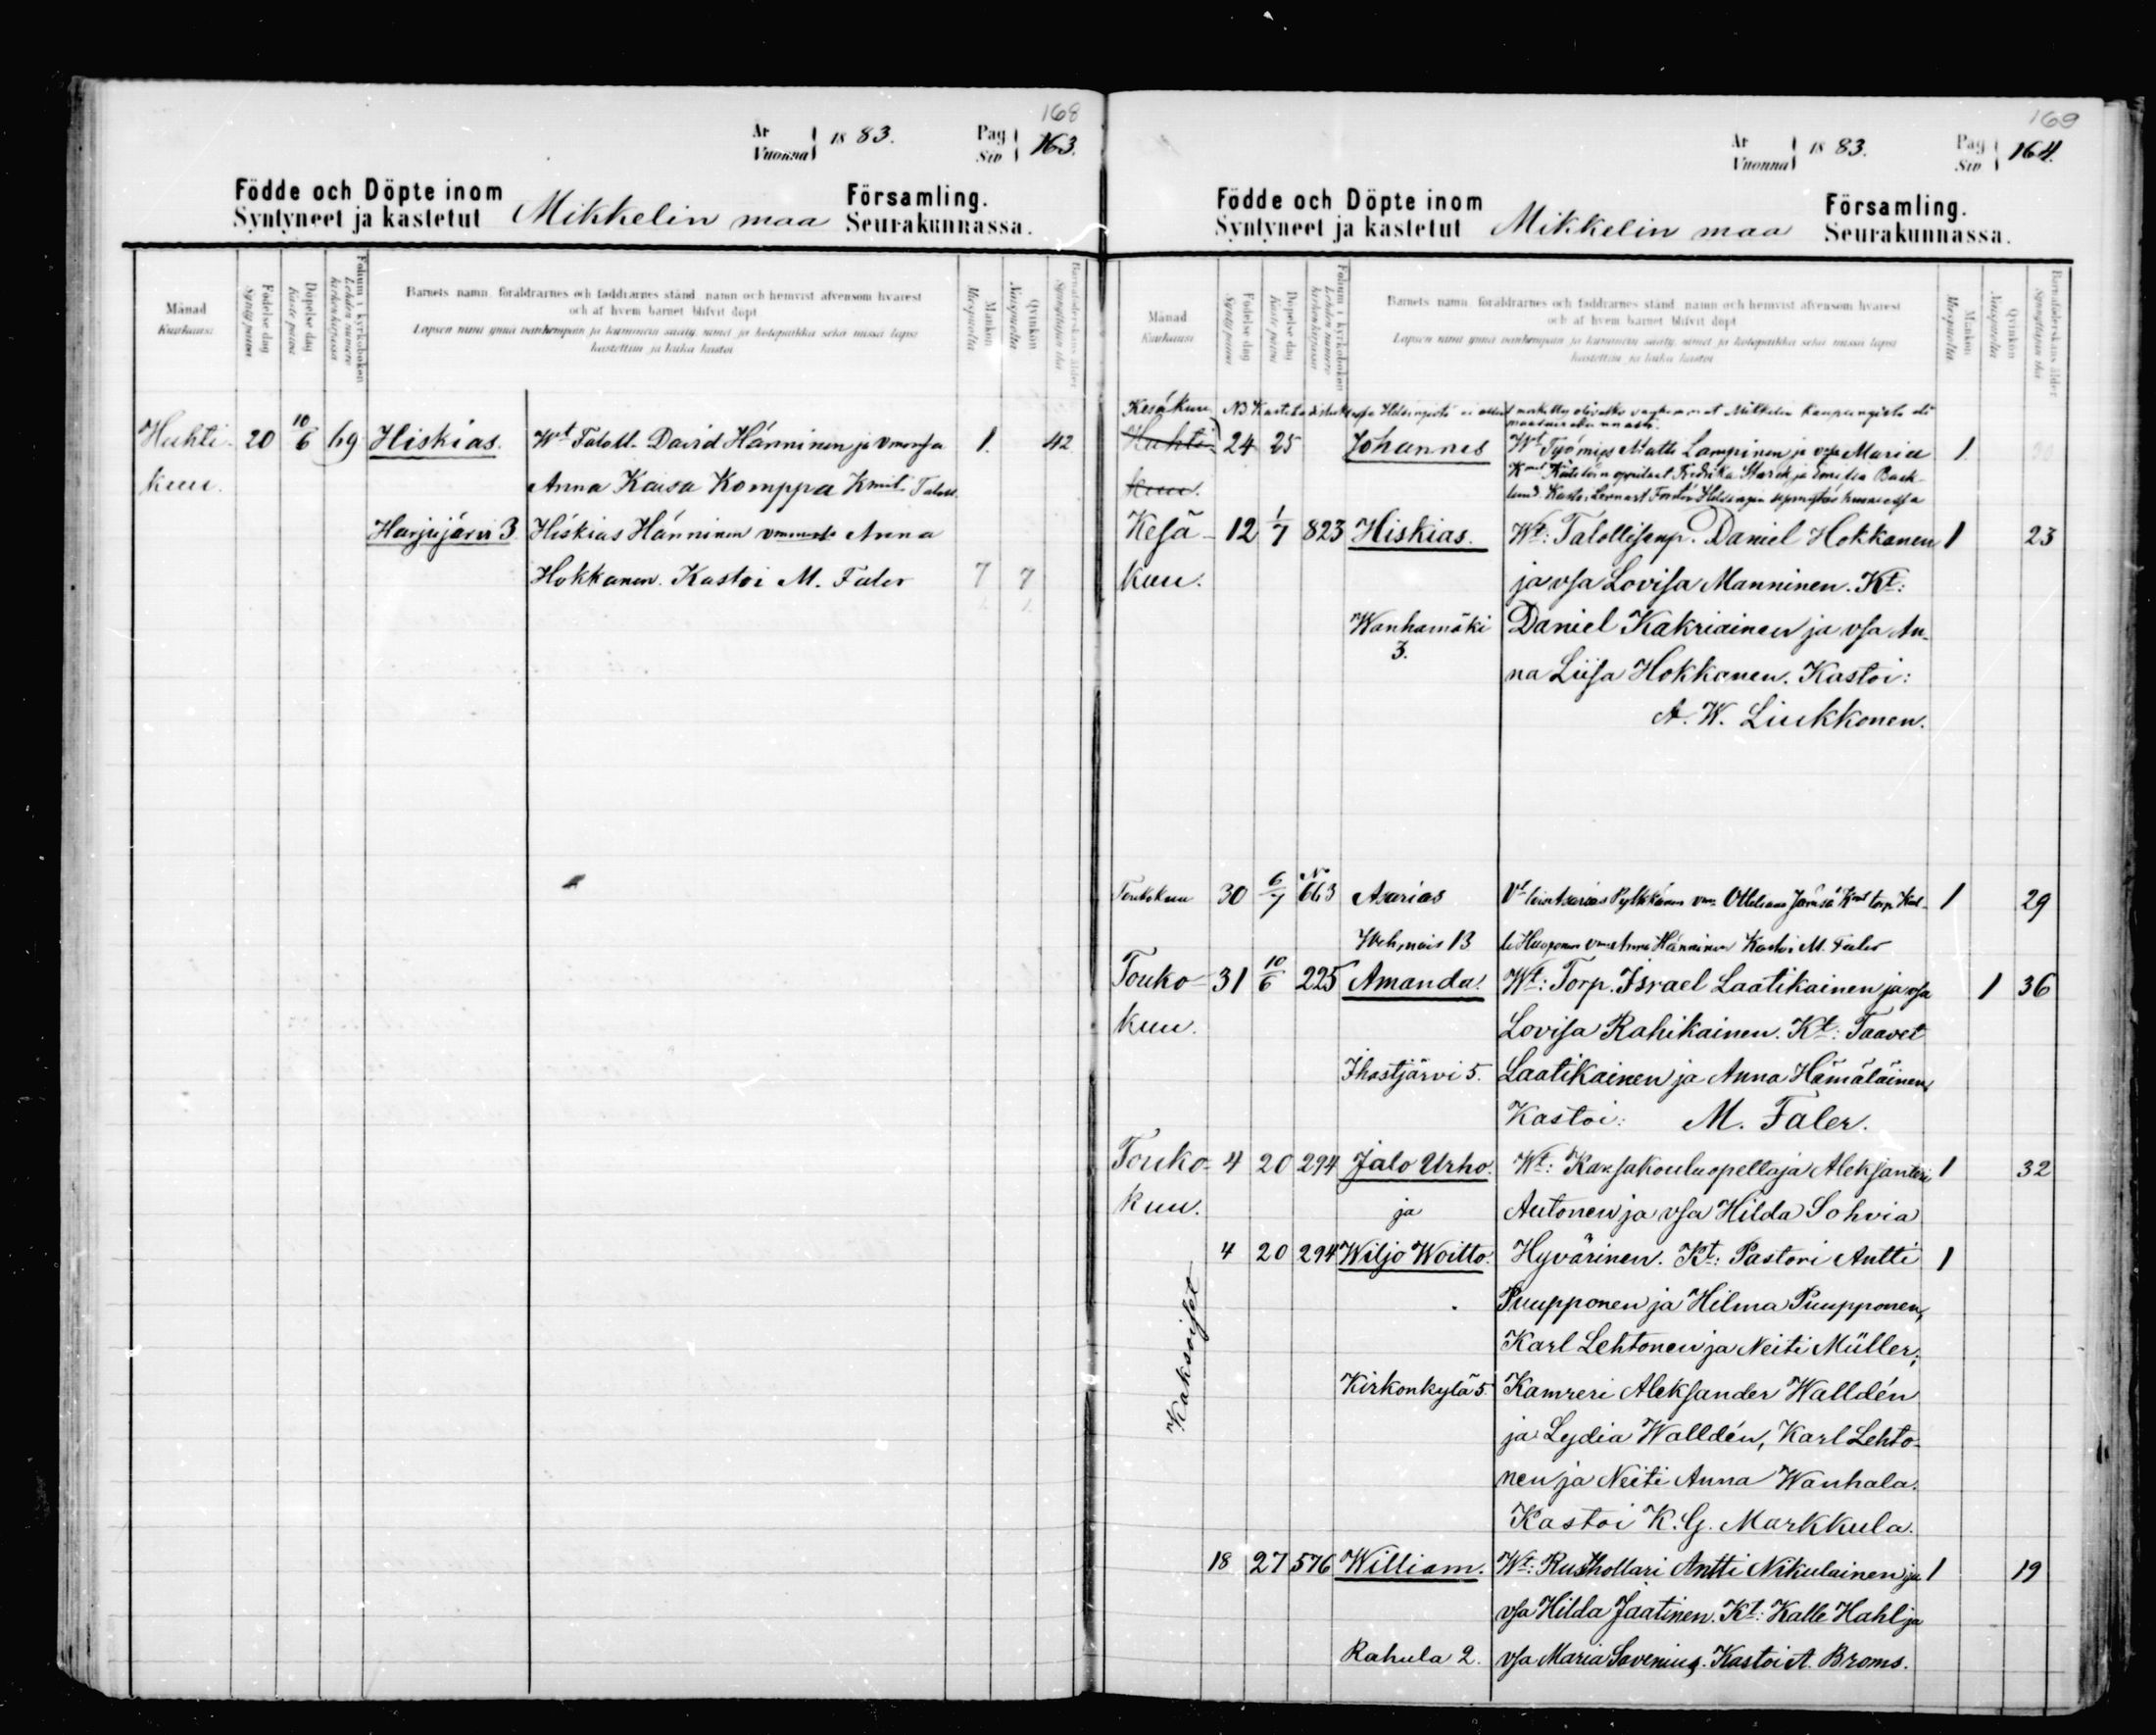 168
År
Vuonna 1883.
Pag
Siv 163.
Födde och Döpte inom
Syntyneet ja kastetut
Mikkelin maa
Församling.
Seurakunnassa.
Månad
Kuukausi
Födelsedag
Syntypäivä
Döpelsedag
Kastepäivä
Folium i kyrkoboken
Lehden numero
kirkonkirjassa
Barnets namn, föräldrarnes och faddrarnes stånd, namn och hemvist äfvensom hvarest
och af hvem barnet blifvit döpt
Lapsen nimi ynnä vanhempain ja kummein sääty, nimet ja kotopaikka sekä missä lapsi
kastettiin ja kuka kastoi
Mankön
Miespuolta
Qvinkön
Naispuolta
Barnaföderskans ålder
Synnyttäjän ikä
Huhti- 20 10/6 69 Hiskias. Wt Taloll. David Hänninen ja vmonsa 1. 42
kuu. Anna Kaisa Komppa Kmit Taloll.
Harjujärvi 3 Hiskias Hänninen Anna
Hokkanen. Kastoi M. Faler 7 7
169
År
Vuonna 1883.
Pag
Siv 164.
Födde och Döpte inom
Syntyneet ja kastetut
Mikkelin maa
Församling.
Seurakunnassa.
Månad
Kuukausi
Födelsedag
Syntypäivä
Döpelsedag
Kastepäivä
Folium i kyrkoboken
Lehden numero
kirkonkirjassa
Barnets namn, föräldrarnes och faddrarnes stånd, namn och hemvist äfvensom hvarest
och af hvem barnet blifvit döpt
Lapsen nimi ynnä vanhempain ja kummein sääty, nimet ja kotopaikka sekä missä lapsi
kastettiin ja kuka kastoi
Mankön
Miespuolta
Qvinkön
Naispuolta
Barnaföderskans ålder
Synnyttäjän ikä
Kesäkuu NB Helsingistä ei vanhemmat Mikkelin kaupungista eli
maaseurakunnasta.
Huhti- 24 25 Johannes Wt Työmies Matti Lampinen ja vsa Maria 1.
kuu. Kmit Fredrika Starck ja Emilia Back-
lund. Kastoi Lennart Helsingin
Kesä- 12 1/7 823 Hiskias. Wt: Talollisenp. Daniel Hokkanen 1 23
kuu. ja vsa Lovisa Manninen. Kt:
Wanhamäki Daniel Kakriainen ja vsa An-
3. na Liisa Hokkanen. Kastoi:
A. W. Liukkonen.
Toukokuu 30 6/7 No 663 Asarias Vt Asarias Pylkkänen vmo Ottiliana Jämsä Kmit torp. Kal- 1 29
Wehmais 13 le Huoponen vmo Anna Hänninen Kastoi M. Faler
Touko- 31 10/6 225 Amanda. Wt: Torp. Israel Laatikainen ja vsa 1 36
kuu. Lovisa Rahikainen. Kt: Taavet
Ihastjärvi 5. Laatikainen ja Anna Hämäläinen.
Kastoi: M. Faler.
Touko- 4 20 294 Jalo Urho. Wt: Kansakouluopettaja Aleksanteri 1 32
kuu. ja Autonen ja vsa Hilda Sohvia
4 20 294 Wiljo Woitto. Hyvärinen. Kt: Pastori Antti 1
Puupponen ja Hilma Puupponen,
Kaksoiset
Karl Lehtonen ja Neiti Müller;
Kirkonkylä 5. Kamreri Aleksander Walldén
ja Lydia Walldén, Karl Lehto-
nen ja Neiti Anna Wanhala.
Kastoi K. G. Markkula.
18 27 576 William. Wt: Rusthollari Antti Nikulainen ja 1 19
vsa Hilda Jaatinen. Kt: Kalle Hahl ja
Rahula 2. vsa Maria Savenius. Kastoi A. Broms.